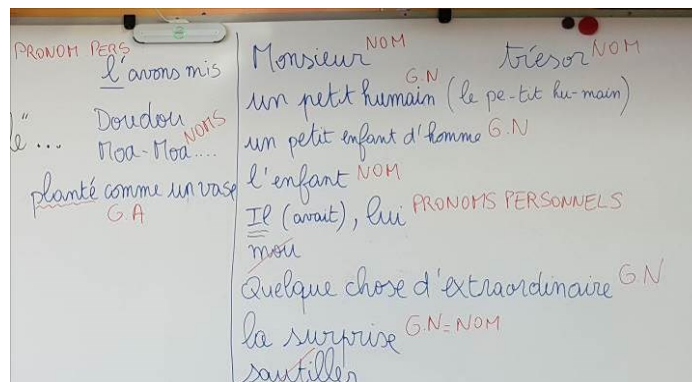 PRONOM PERS
l'avons mis
Doudou
Moa-Moa.... NOMS
planté comme un vase
G.A
Monsieur NOM trésor NOM
un petit humain G.N (le pe-tit hu-main)
un petit enfant d'homme G.N
l'enfant NOM
Il (avait), lui PRONOMS PERSONNELS
mou
Quelque chose d'extraordinaire G.N
la surprise G.N=NOM
sautiller